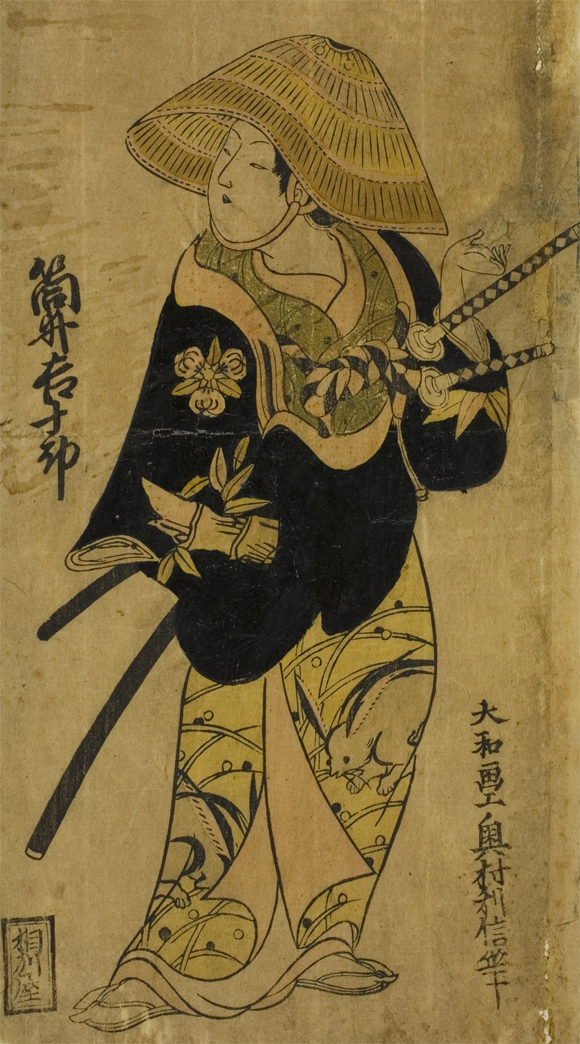 筒井吉十郎
大和画工奥村利信筆
相州屋